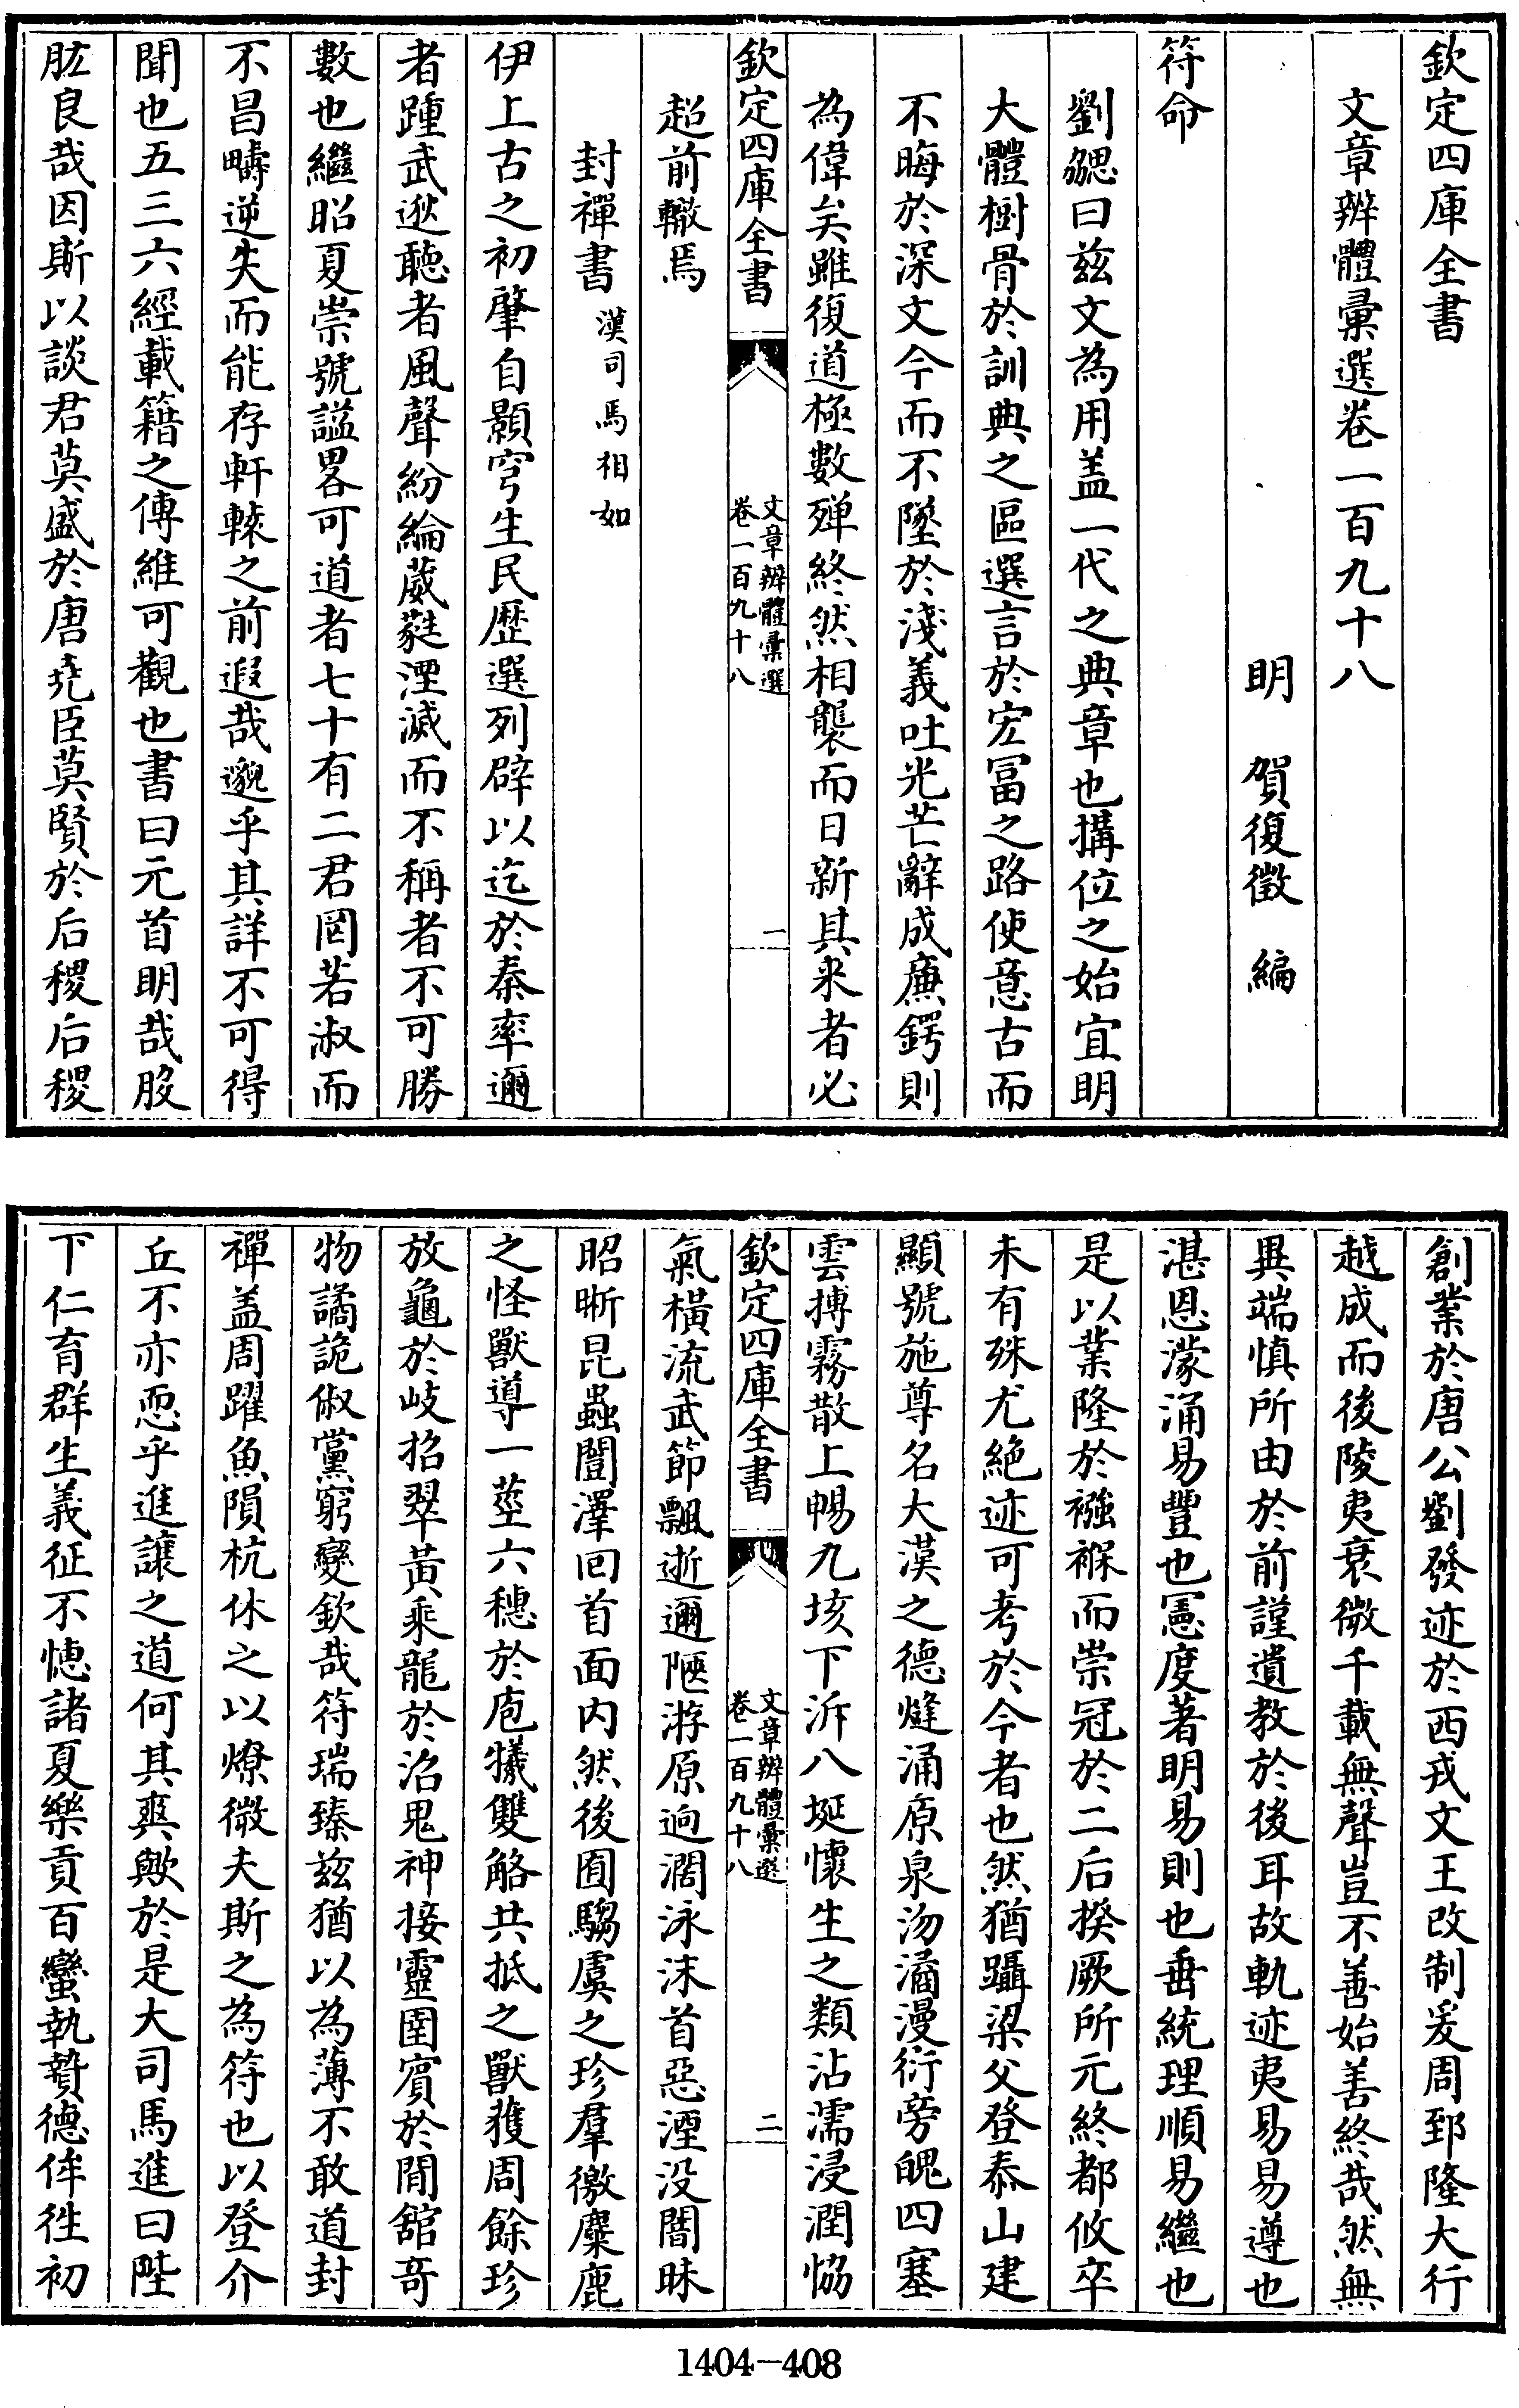 欽定四庫全書
文章辨體彙選卷一百九十八
明 賀復徵 編
符命
劉勰曰兹文為用盖一代之典章也搆位之始宜明
大體樹骨於訓典之區選言於宏冨之路使意古而
不晦於深文今而不墜於淺義吐光芒辭成亷鍔則
為偉矣雖復道極數殫終然相襲而日新其来者必
欽定四庫全書
文章辨體彙選
卷一百九十八
一
超前轍焉
封禪書 漢司馬相如
伊上古之初肇自顥穹生民歴選列辟以迄於秦率邇
者踵武逖聽者風聲紛綸葳蕤湮滅而不稱者不可勝
數也繼昭夏崇號諡畧可道者七十有二君罔若淑而
不昌疇逆失而能存軒轅之前遐哉邈乎其詳不可得
聞也五三六經載籍之傳維可觀也書曰元首明哉股
肱良哉因斯以談君莫盛於唐堯臣莫賢於后稷后稷
創業於唐公劉發迹於西戎文王改制爰周郅隆大行
越成而後陵夷衰微千載無聲豈不善始善終哉然無
異端慎所由於前謹遺教於後耳故軌迹夷易易遵也
湛恩濛涌易豐也憲度著明易則也垂統理順易繼也
是以業隆於襁褓而崇冠於二后揆厥所元終都攸卒
未有殊尤絶迹可考於今者也然猶躡梁父登泰山建
顯號施尊名大漢之德㷭涌原泉沕潏漫衍旁魄四塞
雲摶霧散上暢九垓下泝八埏懷生之類沾濡浸潤恊
欽定四庫全書
文章辨體彙選
卷一百九十八
二
氣橫流武節飄逝邇陿游原逈濶泳沫首惡湮没闇昧
昭晰昆蟲闓澤回首面内然後囿騶虞之珍羣徼麋鹿
之怪獸導一莖六穗於庖犧雙觡共抵之獸獲周餘珍
放龜於岐招翠黃乘龍於沼鬼神接靈圉賓於閒舘奇
物譎詭俶黨窮變欽哉符瑞臻兹猶以為薄不敢道封
禪盖周躍魚隕杭休之以燎微夫斯之為符也以登介
丘不亦恧乎進讓之道何其爽歟於是大司馬進曰陛
下仁育群生義征不憓諸夏樂貢百蠻執贄德侔徃初
1404-408